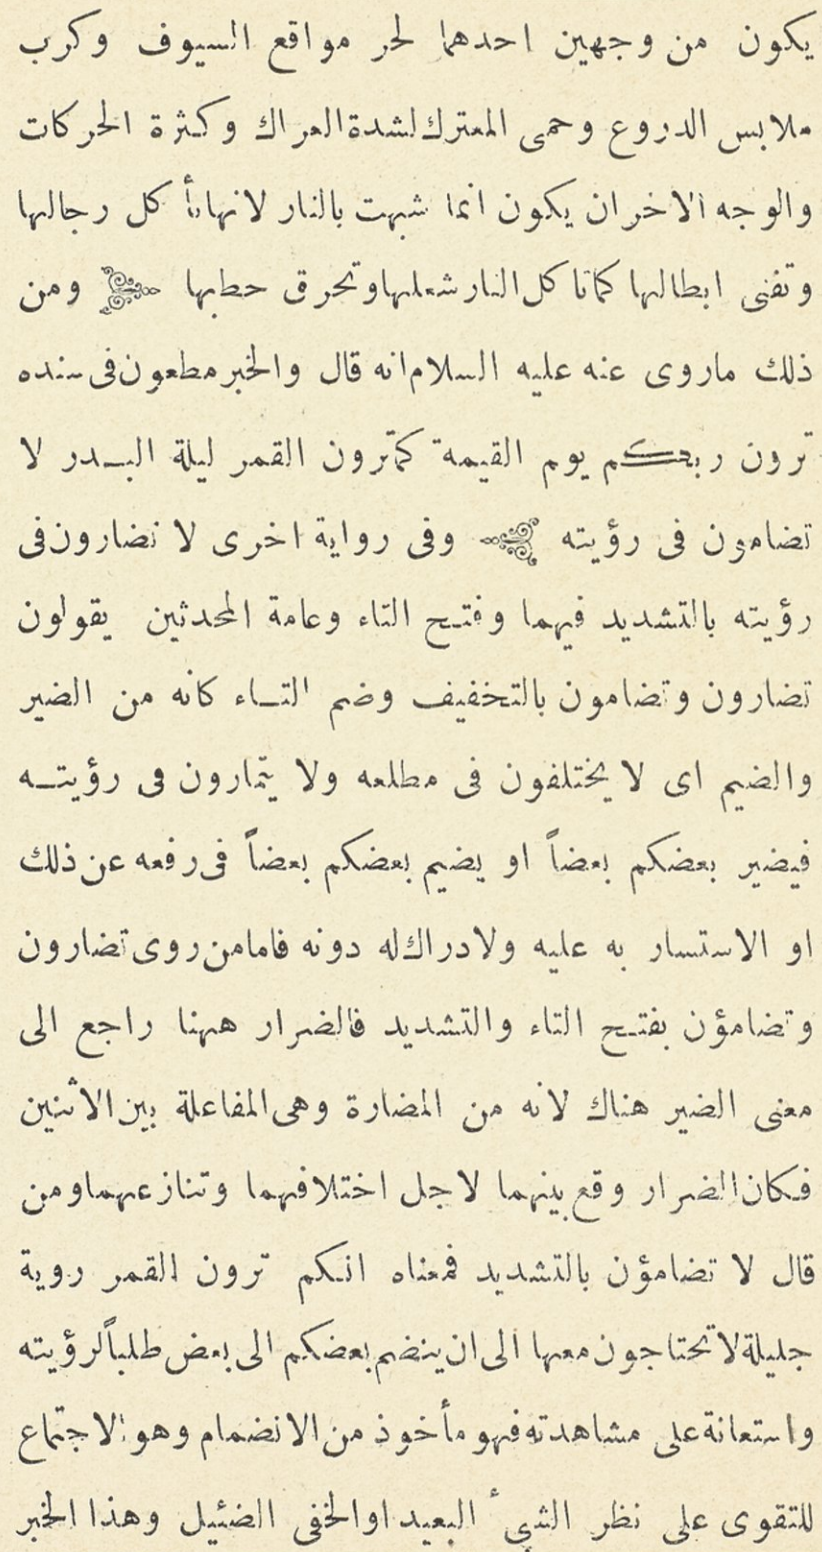 يكون من وجهين احدهما لحر مواقع السيوف وكرب
ملابس الدروع وحمى المعترك لشدة العراك وكثرة الحركات
والوجه الاخر ان يكون انما شبهت بالنار لانها تأكل رجالها
وتفنى ابطالها كما تاكل النار شعلها وتحرق حطبها ومن
ذلك ماروى عنه عليه السلام انه قال والخبر مطعون فى سنده
ترون ربكم يوم القيمة كما ترون القمر ليلة البدر لا
تضامون فى رؤيته وفى رواية اخرى لا تضارون فى
رؤيته بالتشديد فيهما وفتح التاء وعامة المحدثين يقولون
تضارون وتضامون بالتخفيف وضم التاء كانه من الضير
والضيم اى لا يختلفون فى مطلعه ولا يتمارون فى رؤيته
فيضير بعضكم بعضاً او يضيم بعضكم بعضاً فى رفعه عن ذلك
او الاستسار به عليه ولادراك له دونه فامامن روى تضارون
وتضامؤن بفتح التاء والتشديد فالضرار ههنا راجع الى
معنى الضير هناك لانه من المضارة وهى المفاعلة بين الاثنين
فكان الضرار وقع بينهما لاجل اختلافهما وتنازعهما ومن
قال لا تضامؤن بالتشديد فمعناه انكم ترون القمر روية
جليلة لا تحتاجون معها الى ان ينضم بعضكم الى بعض طلباً لرؤيته
واستعانة على مشاهدته فهو مأخوذ من الانضمام وهو الاجتماع
للتقوى على نظر الشئ البعيد او الخفى الضئيل وهذا الخبر